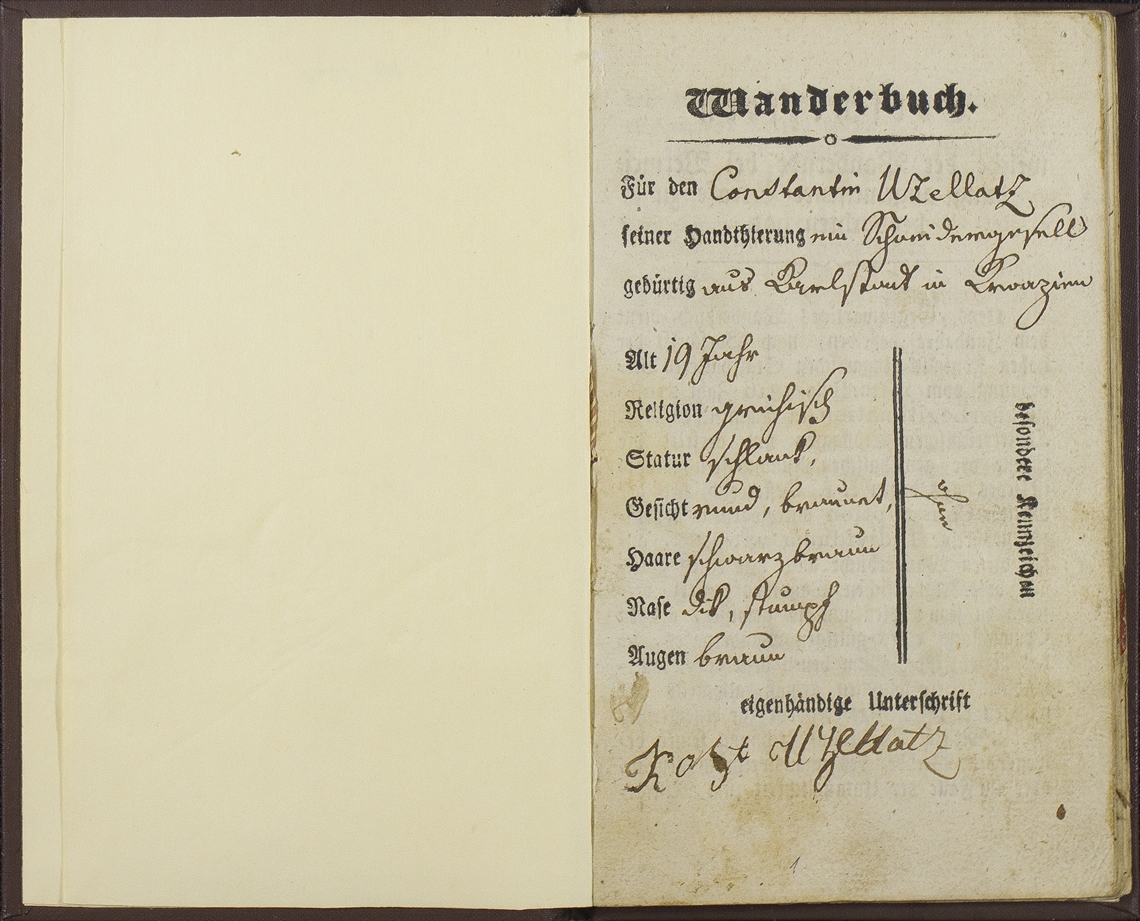 Wanderbuch.
Für den Constantin Uzellatz
seiner Handthierung ein Schneidergesell
gebürtig aus Karlstadt in Kroazien
Alt 19 Jahr
Religion griechisch
Statur schlank,
Gesicht rund, braunet,
Haare schwarzbraun
Nase dik, stumpf
Augen braun
besondere Kennzeichen
eigenhändige Unterschrift
Uzellatz